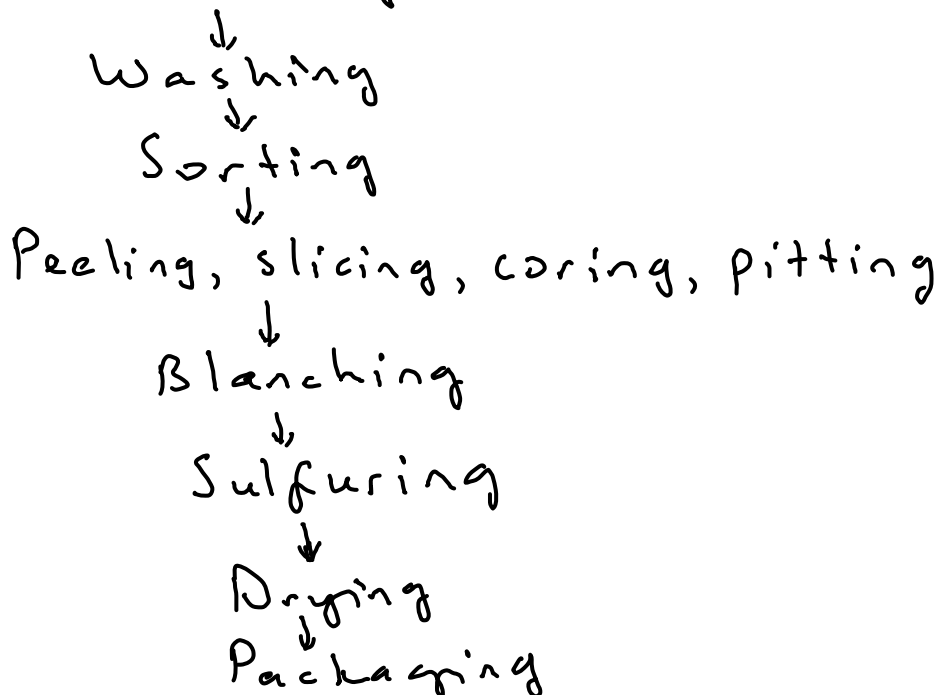 ↓
Washing
↓
Sorting
↓
Peeling, slicing, coring, pitting
↓
Blanching
↓
Sulfuring
↓
Drying
↓
Packaging